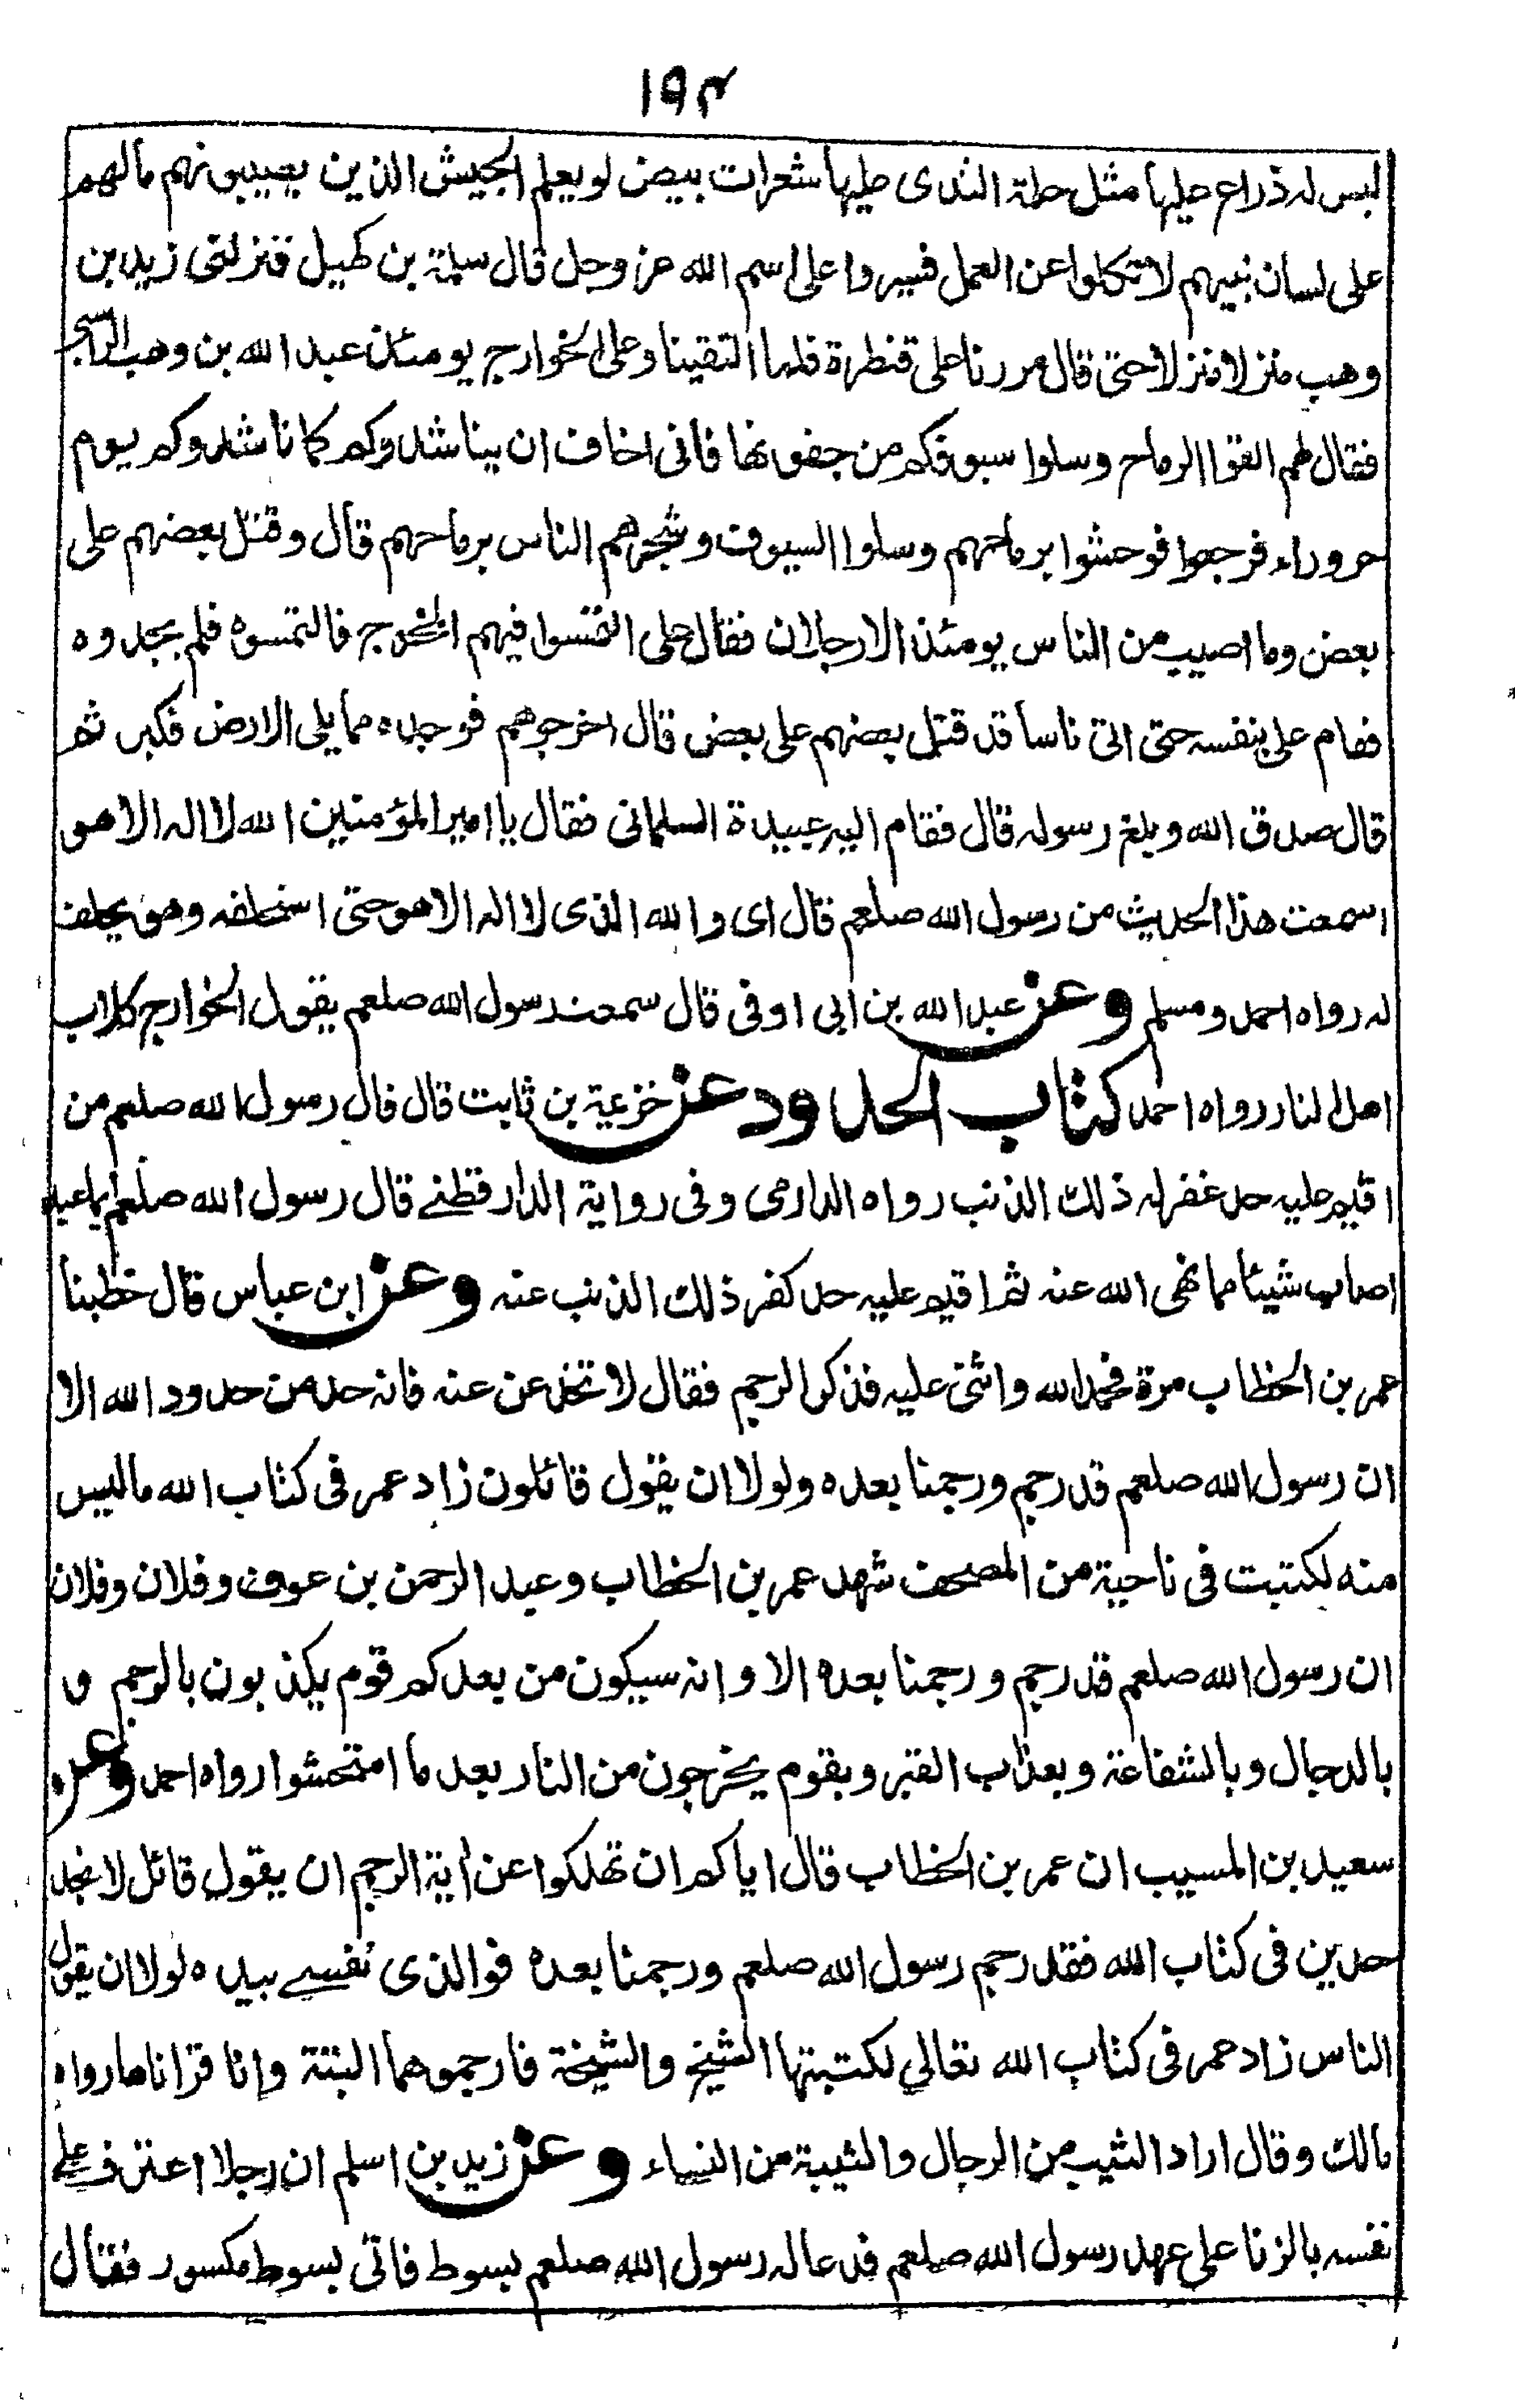 ١٩٣
ليس له ذراع عليها مثل حلمة الثدى عليها شعرات بيض لو يعلم الجيش الذين يصيبونهم مالهم
على لسان نبيهم لاتكلوا عن العمل فسيروا على اسم الله عز وجل قال سلمة بن كهيل فنزلنى زيد بن
وهب منزلا منزلا حتى قال مررنا على قنطرة فلما التقينا وعلى الخوارج يومئذ عبد الله بن وهب الراسبى
فقال لهم القوا الرماح وسلوا سيوفكم من جفونها فانى اخاف ان يناشدوكم كما ناشدوكم يوم
حروراء فرجعوا فوحشوا برماحهم وسلوا السيوف وشجرهم الناس برماحهم قال وقتل بعضهم على
بعض وما اصيب من الناس يومئذ الا رجلان فقال على التمسوا فيهم المخدج فالتمسوه فلم يجدوه
فقام على بنفسه حتى اتى ناسا قد قتل بعضهم على بعض قال اخرجوهم فوجده مما يلى الارض فكبر ثم
قال صدق الله وبلغ رسوله قال فقام اليه عبيدة السلمانى فقال يا امير المؤمنين الله لا اله الا هو
اسمعت هذا الحديث من رسول الله صلعم قال اى والله الذى لا اله الا هو حتى استحلفه وهو يحلف
له رواه احمد ومسلم وعن عبد الله بن ابى اوفى قال سمعت رسول الله صلعم يقول الخوارج كلاب
اهل النار رواه احمد كتاب الحدود عن خزيمة بن ثابت قال قال رسول الله صلعم من
اقيم عليه حد غفر له ذلك الذنب رواه الدارمى وفى رواية الدارقطنے قال رسول الله صلعم ايما عبد
اصاب شيئا مما نهى الله عنه ثم اقيم عليه حد كفر ذلك الذنب عنه وعن ابن عباس قال خطبنا
عمر بن الخطاب مرة فحمد الله واثنى عليه فذكر الرجم فقال لا تخدعن عنه فانه حد من حدود الله الا
ان رسول الله صلعم قد رجم ورجمنا بعده ولولا ان يقول قائلون زاد عمر فى كتاب الله ما ليس
منه لكتبت فى ناحية من المصحف شهد عمر بن الخطاب وعبد الرحمن بن عوف وفلان وفلان
ان رسول الله صلعم قد رجم ورجمنا بعده الا وانه سيكون من بعدكم قوم يكذبون بالرجم و
بالدجال وبالشفاعة وبعذاب القبر وبقوم يخرجون من النار بعد ما امتحشوا رواه احمد وعن
سعيد بن المسيب ان عمر بن الخطاب قال اياكم ان تهلكوا عن اية الرجم ان يقول قائل لا نجد
حدين فى كتاب الله فقد رجم رسول الله صلعم ورجمنا بعده فوالذى نفسے بيده لولا ان يقول
الناس زاد عمر فى كتاب الله تعالي لكتبتها الشيخ والشيخة فارجموهما البتة وانا قرأناها رواه
مالك وقال اراد الثيب من الرجال والثيبة من النساء وعن زيد بن اسلم ان رجلا اعترف علے
نفسه بالزنا على عهد رسول الله صلعم فدعا له رسول الله صلعم بسوط فاتى بسوط مكسور فقال